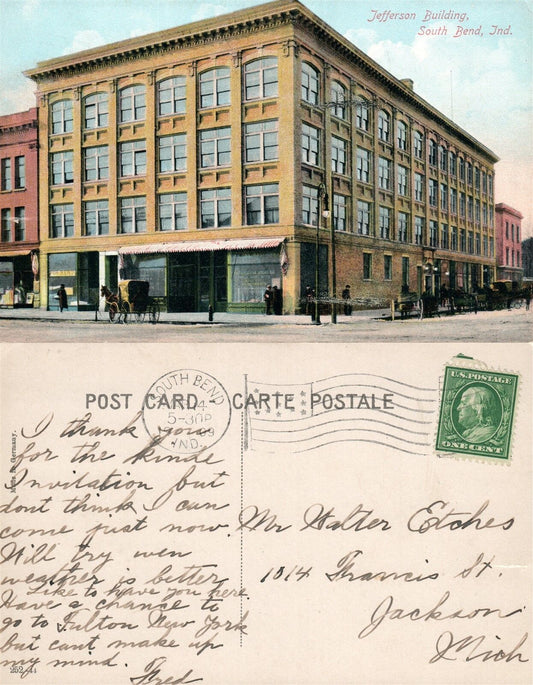 Jefferson Building,
South Bend, Ind.
POST CARD — CARTE POSTALE
SOUTH BEND
4
5-30P
09
IND.
U.S. POSTAGE
ONE CENT
Made in Germany.
I thank you
for the kinde
Invitation but
dont think I can
come just now.
Will try wen
weather is better
Like to have you here.
Have a chance to
go to Fulton New York
but cant make up
my mind.
Fred
252/14
Mr Walter Etches
1014 Francis St.
Jackson
Mich